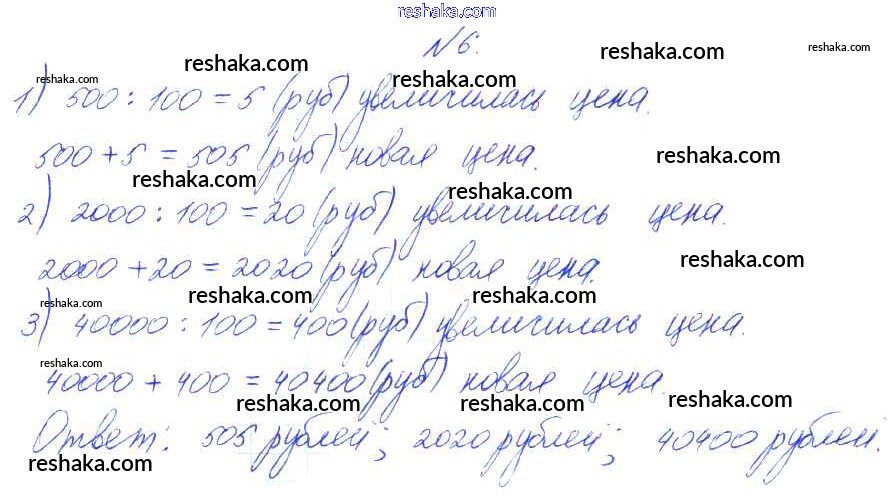 reshaka.com
№6.
reshaka.com reshaka.com reshaka.com
reshaka.com reshaka.com
1) 500 : 100 = 5 (руб) увеличилась цена.
500 + 5 = 505 (руб) новая цена.
reshaka.com
reshaka.com reshaka.com
2) 2000 : 100 = 20 (руб) увеличилась цена.
2000 + 20 = 2020 (руб) новая цена.
reshaka.com
reshaka.com reshaka.com reshaka.com
3) 40000 : 100 = 400 (руб) увеличилась цена.
reshaka.com
40000 + 400 = 40400 (руб) новая цена.
reshaka.com reshaka.com reshaka.com
Ответ: 505 рублей; 2020 рублей; 40400 рублей.
reshaka.com